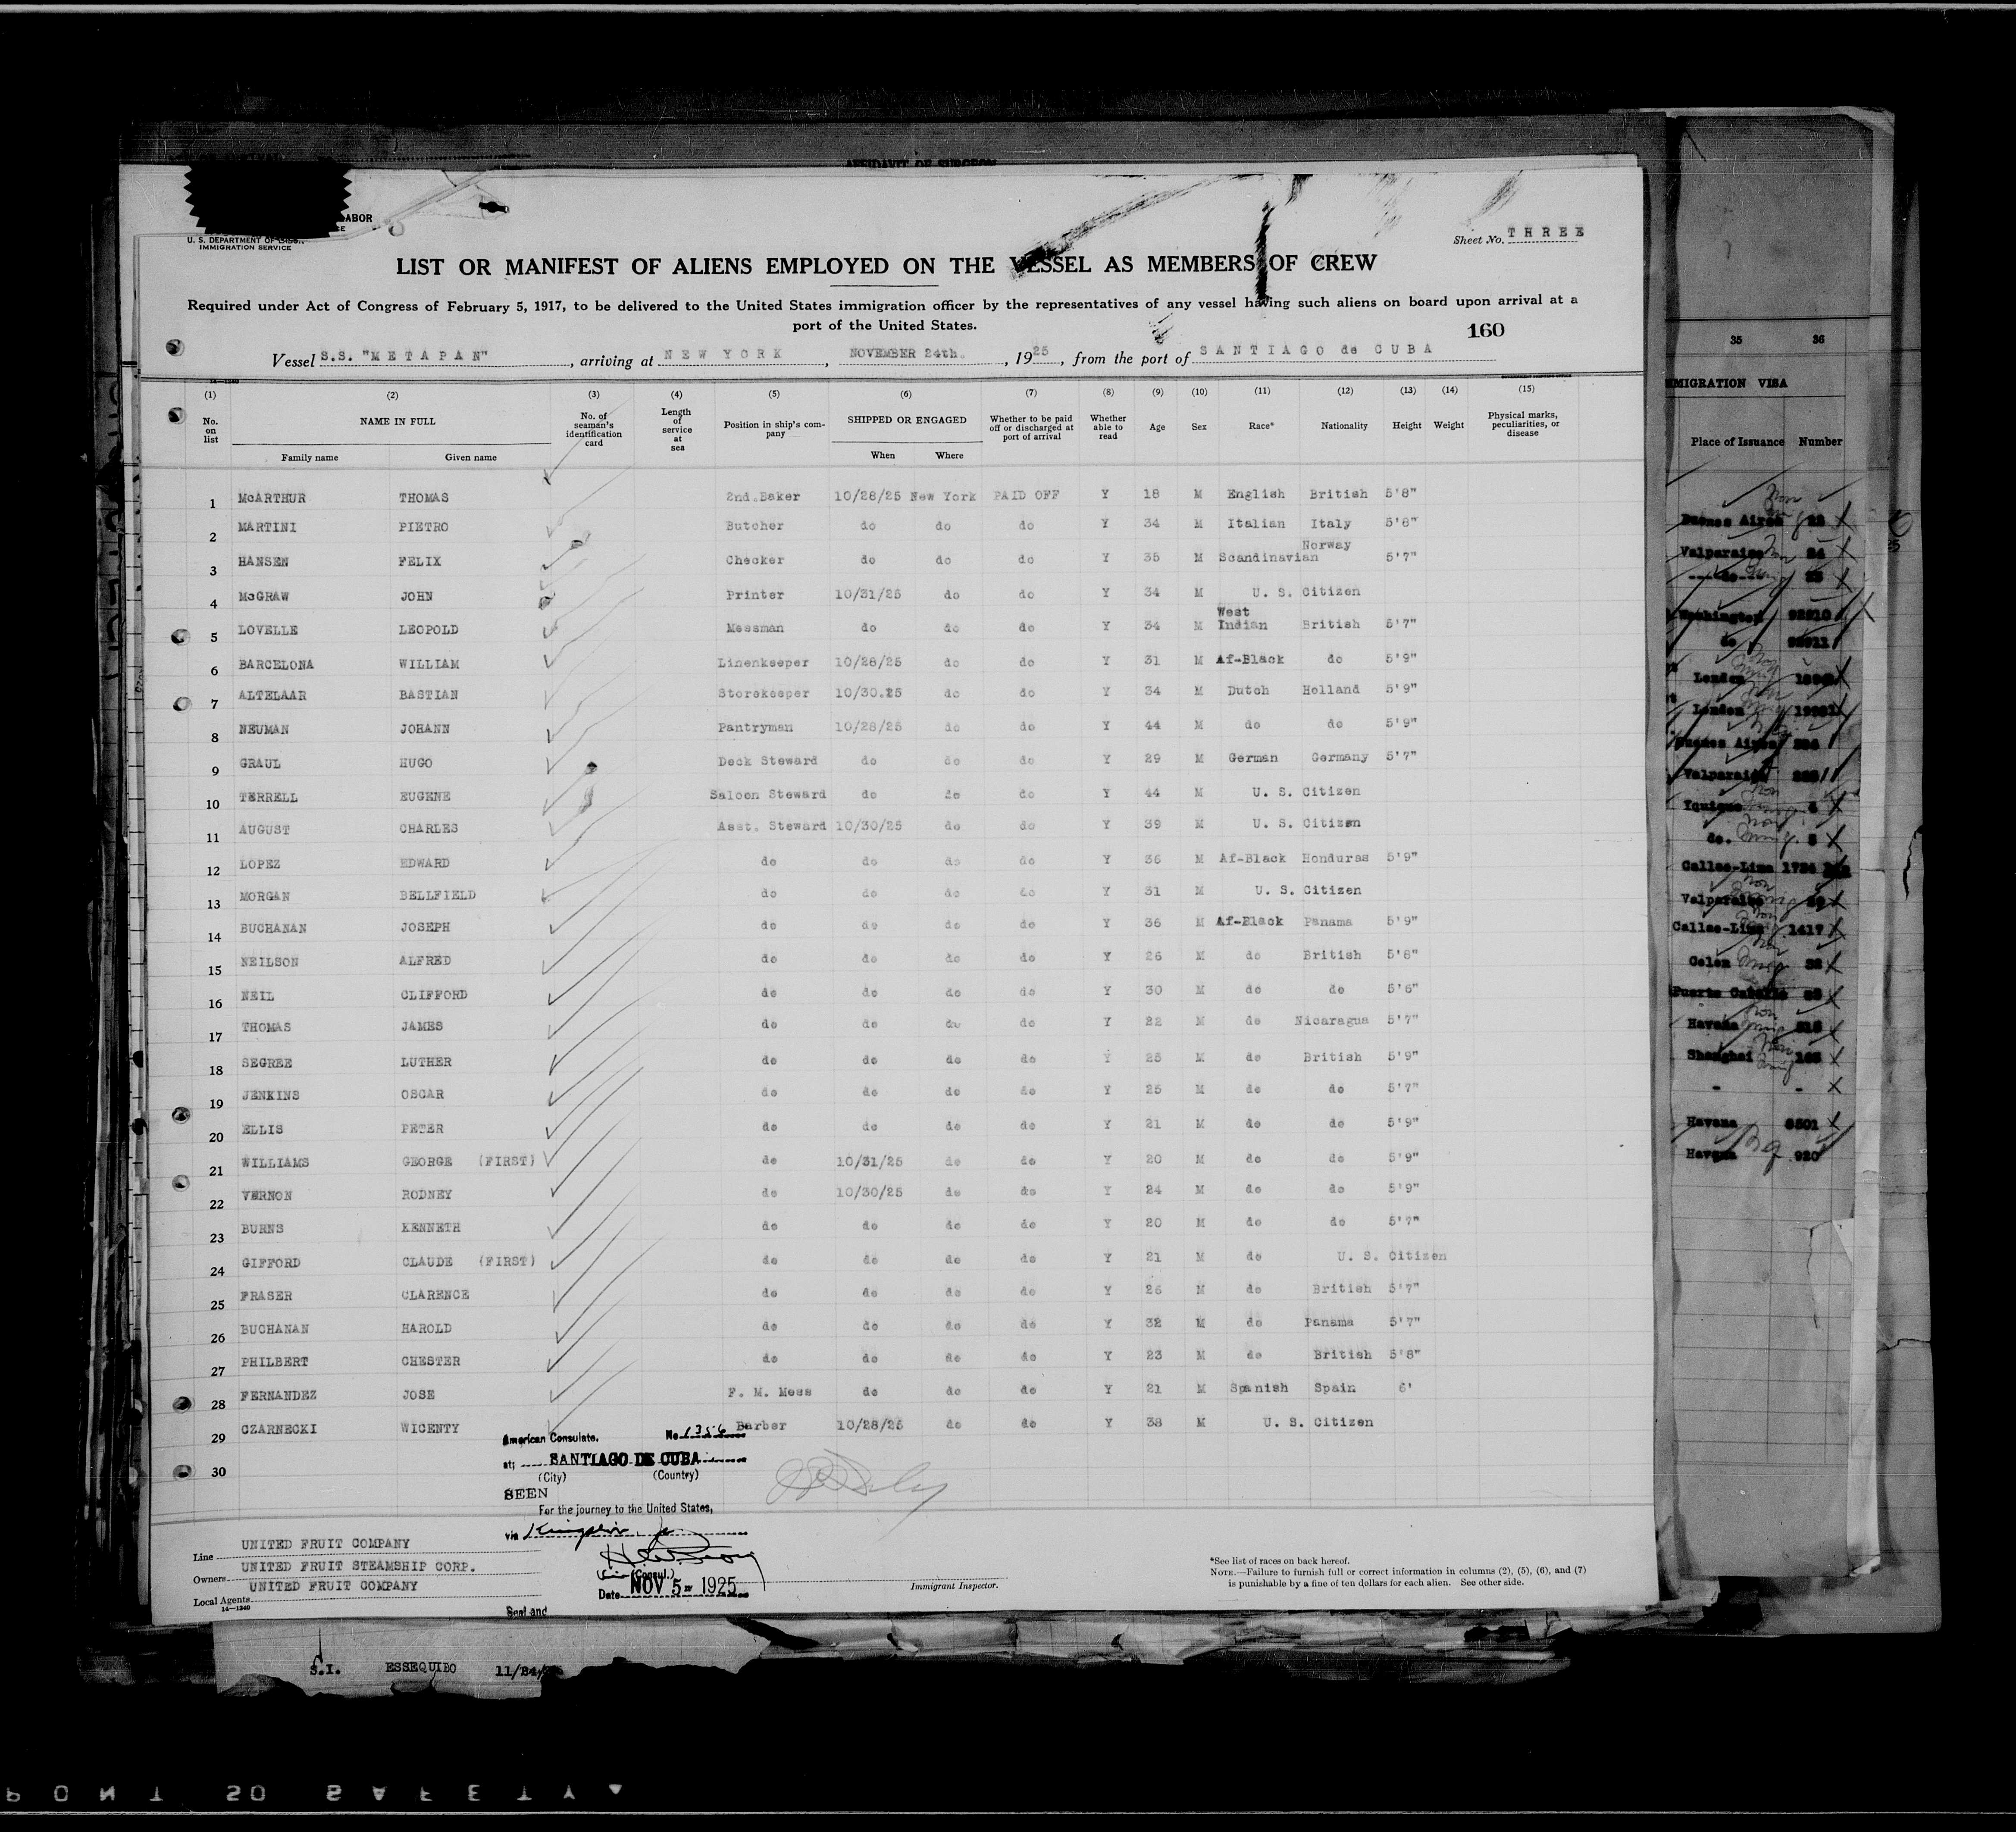 AFFIDAVIT OF SURGEON
LABOR
U. S. DEPARTMENT OF
IMMIGRATION SERVICE
Sheet No. THREE
LIST OR MANIFEST OF ALIENS EMPLOYED ON THE VESSEL AS MEMBERS OF CREW
Required under Act of Congress of February 5, 1917, to be delivered to the United States immigration officer by the representatives of any vessel having such aliens on board upon arrival at a
port of the United States.
160
Vessel S.S. "METAPAN", arriving at NEW YORK, NOVEMBER 24th., 1925, from the port of SANTIAGO de CUBA
14-1240
(1) (2) (3) (4) (5) (6) (7) (8) (9) (10) (11) (12) (13) (14) (15)
No. on list NAME IN FULL Family name Given name No. of seaman's identification card Length of service at sea Position in ship's company SHIPPED OR ENGAGED When Where Whether to be paid off or discharged at port of arrival Whether able to read Age Sex Race* Nationality Height Weight Physical marks, peculiarities, or disease
1 McARTHUR THOMAS 2nd.Baker 10/28/25 New York PAID OFF Y 18 M English British 5'8"
2 MARTINI PIETRO Butcher do do do Y 34 M Italian Italy 5'8"
3 HANSEN FELIX Checker do do do Y 35 M Scandinavian Norway 5'7"
4 McGRAW JOHN Printer 10/31/25 do do Y 34 M U. S. Citizen
5 LOVELLE LEOPOLD Messman do do do Y 34 M West Indian British 5'7"
6 BARCELONA WILLIAM Linenkeeper 10/28/25 do do Y 31 M Af-Black do 5'9"
7 ALTELAAR BASTIAN Storekeeper 10/30.25 do do Y 34 M Dutch Holland 5'9"
8 NEUMAN JOHANN Pantryman 10/28/25 do do Y 44 M do do 5'9"
9 GRAUL HUGO Deck Steward do do do Y 29 M German Germany 5'7"
10 TERRELL EUGENE Saloon Steward do do do Y 44 M U. S. Citizen
11 AUGUST CHARLES Asst. Steward 10/30/25 do do Y 39 M U. S. Citizen
12 LOPEZ EDWARD do do do do Y 36 M Af-Black Honduras 5'9"
13 MORGAN BELLFIELD do do do do Y 31 M U. S. Citizen
14 BUCHANAN JOSEPH do do do do Y 36 M Af-Black Panama 5'9"
15 NEILSON ALFRED do do do do Y 26 M do British 5'8"
16 NEIL CLIFFORD do do do do Y 30 M do do 5'6"
17 THOMAS JAMES do do do do Y 22 M do Nicaragua 5'7"
18 SEGREE LUTHER do do do do Y 25 M do British 5'9"
19 JENKINS OSCAR do do do do Y 25 M do do 5'7"
20 ELLIS PETER do do do do Y 21 M do do 5'9"
21 WILLIAMS GEORGE (FIRST) do 10/31/25 do do Y 20 M do do 5'9"
22 VERNON RODNEY do 10/30/25 do do Y 24 M do do 5'9"
23 BURNS KENNETH do do do do Y 20 M do do 5'7"
24 GIFFORD CLAUDE (FIRST) do do do do Y 21 M do U. S. Citizen
25 FRASER CLARENCE do do do do Y 26 M do British 5'7"
26 BUCHANAN HAROLD do do do do Y 32 M do Panama 5'7"
27 PHILBERT CHESTER do do do do Y 23 M do British 5'8"
28 FERNANDEZ JOSE F. M. Mess do do do Y 21 M Spanish Spain 6'
29 CZARNECKI WICENTY Barber 10/28/25 do do Y 38 M U. S. Citizen
30
American Consulate. No 1356
at; SANTIAGO DE CUBA
(City) (Country)
SEEN
For the journey to the United States,
via Kingston, Ja
(Consul.)
Date NOV 5 1925
Seal and
Line UNITED FRUIT COMPANY
Owners UNITED FRUIT STEAMSHIP CORP.
Local Agents UNITED FRUIT COMPANY
14-1240
Immigrant Inspector.
*See list of races on back hereof.
NOTE.—Failure to furnish full or correct information in columns (2), (5), (6), and (7)
is punishable by a fine of ten dollars for each alien. See other side.
35 36
IMMIGRATION VISA
Place of Issuance Number
Buenes Aires 22
Valparaiso 24
do 25
Washington 92910
do 92911
London
London
Buenes Aires
Valparaiso
Yquique 4
do. 5
Callao-Lima 1724
Valparaiso
Callao-Lima 1417
Colon 38
Puerto Cabello
Havana 518
Shanghai 165
- -
Havana 8501
Havana 920
S.I. ESSEQUIBO 11/24/
PONT SO SAFETY